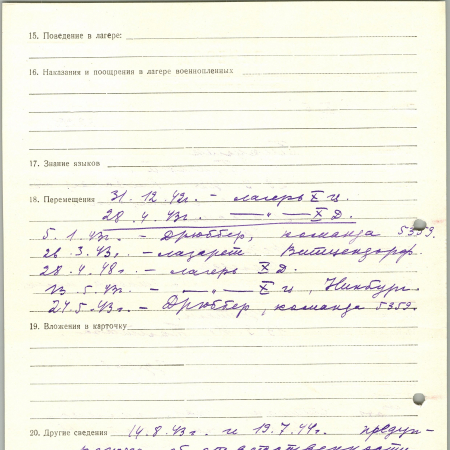 15. Поведение в лагере:
16. Наказания и поощрения в лагере военнопленных
17. Знание языков
18. Перемещения 31.12.42г. – лагерь X ц.
28.4.43г. —〃— X Д.
5.1.43г. – Дрюббер, команда 5359.
26.3.43г. – лазарет Витцендорф.
28.4.48г. – лагерь X Д.
13.5.43г. —〃— X ц, Нинбург.
24.5.43г. – Дрюббер, команда 5359.
19. Вложения в карточку
20. Другие сведения 14.8.43г. и 19.7.44г. предуп-
об ответственности